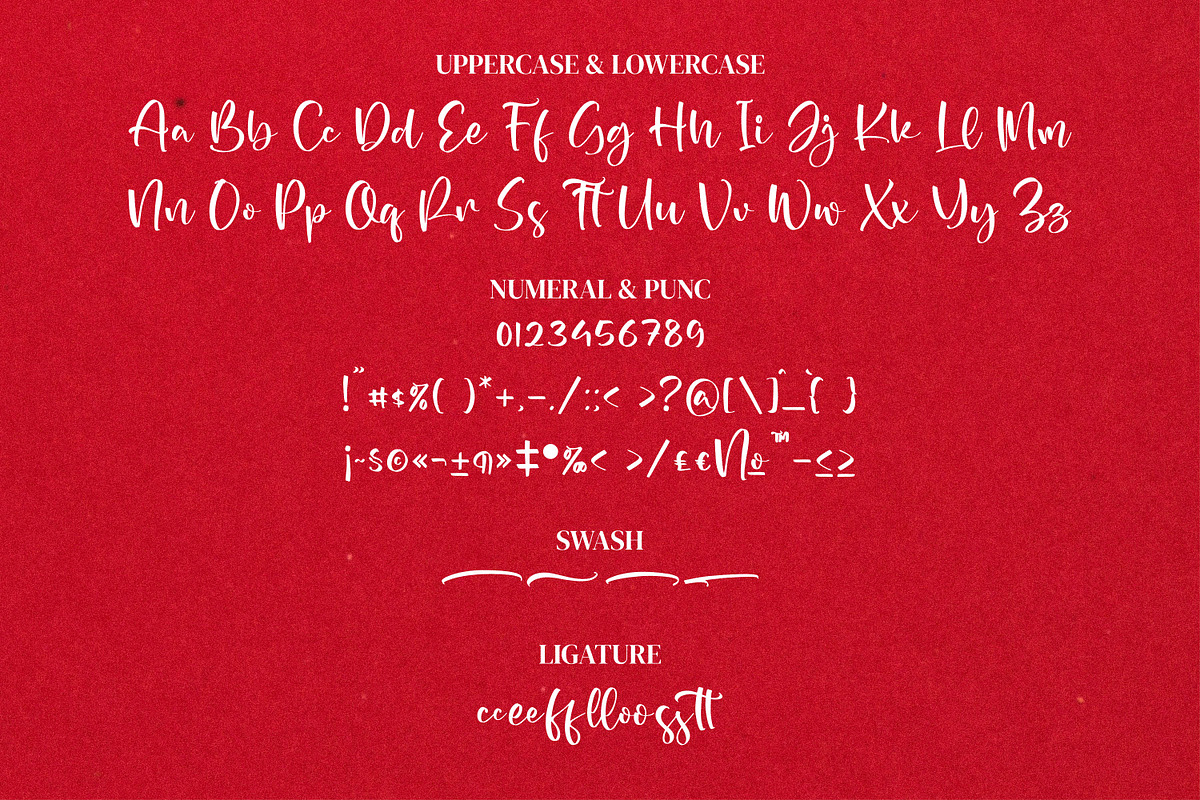 UPPERCASE & LOWERCASE
Aa Bb Cc Dd Ee Ff Gg Hh Ii Jj Kk Ll Mm
Nn Oo Pp Qq Rr Ss Tt Uu Vv Ww Xx Yy Zz
NUMERAL & PUNC
0123456789
!"#$%( )*+,-./:;< >?@[\]^_`{ }
¡~§©«¬±¶»‡•‰< >/£€№™−≤≥
SWASH
LIGATURE
cceefflloosstt